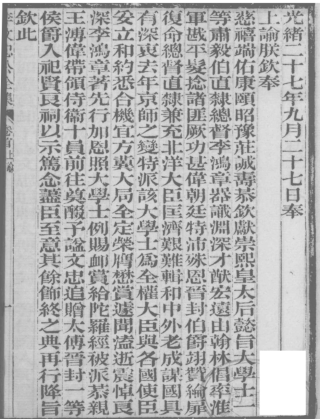 光緒二十七年九月二十七日奉
上諭朕欽奉
慈禧端佑康頤昭豫莊誠壽恭欽獻崇熙皇太后懿旨大學士一
等肅毅伯直隸總督李鴻章器識淵深才猷宏遠由翰林倡率淮
軍戡平髮捻諸匪厥功甚偉朝廷特沛殊恩晉封伯爵翊贊綸扉
復命總督直隸兼充北洋大臣匡濟艱難輯和中外老成謀國具
有深衷去年京師之變特派該大學士為全權大臣與各國使臣
妥立和約悉合機宜方冀大局全定榮膺懋賞遽聞溘逝震悼良
深李鴻章著先行加恩照大學士例賜卹賞給陀羅經被派恭親
王溥偉帶領侍衛十員前往奠醊予諡文忠追贈太傅晉封一等
侯爵入祀賢良祠以示篤念藎臣至意其餘飾終之典再行降旨
欽此